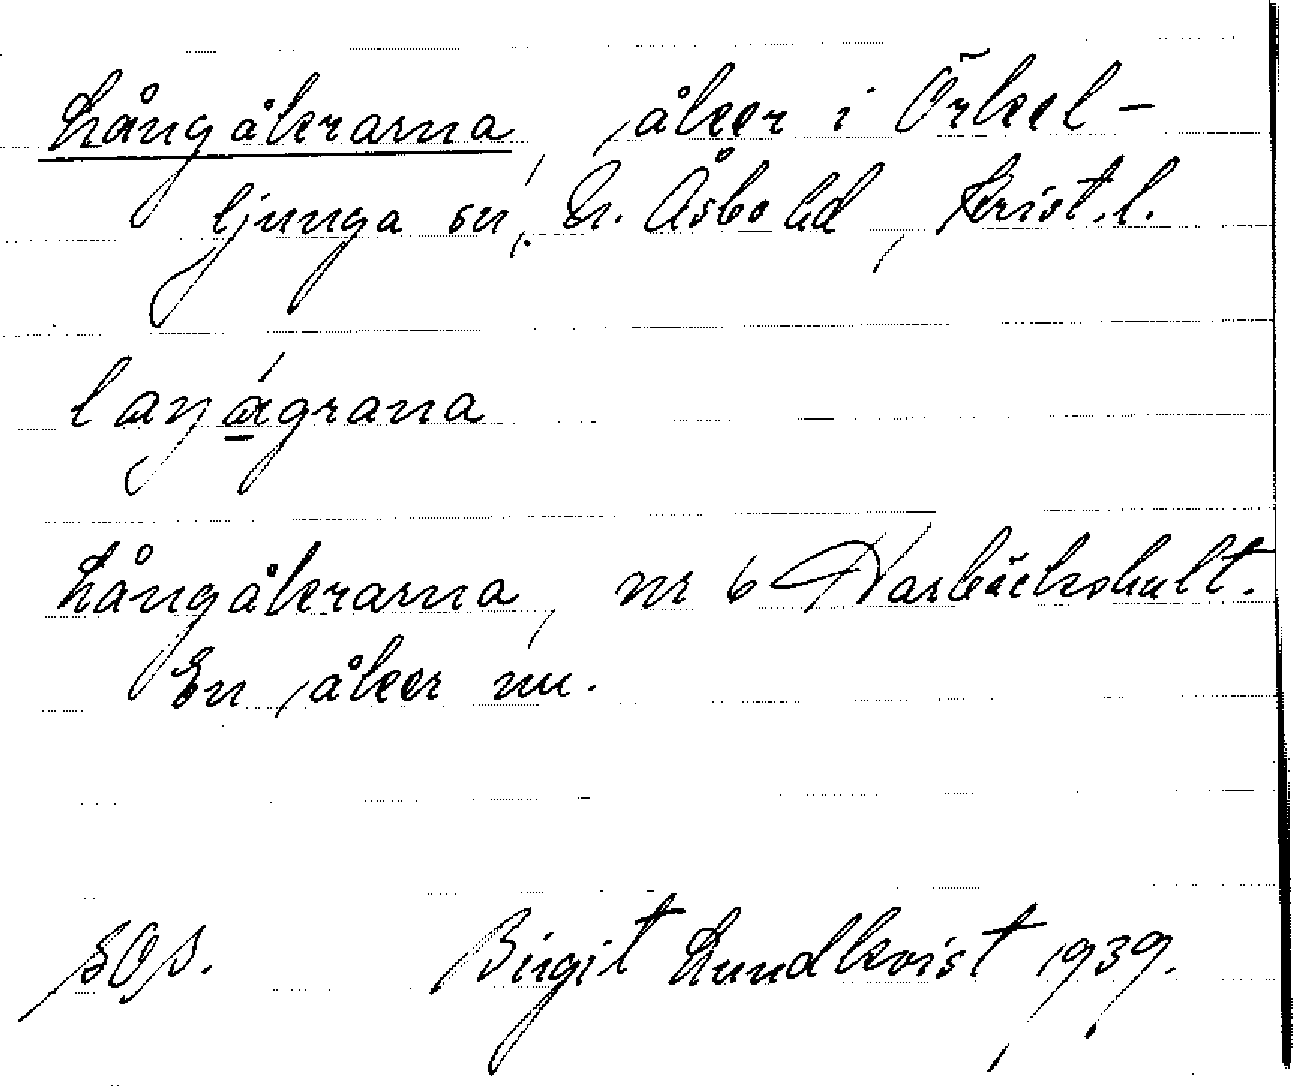 Långåkrarna, åker i Örkel-
ljunga sn, N. Åsbo hd, Krist. l.
laŋágrana
Långåkrarna, nr 6 Harbäckshult.
En åker nu.
Birgit Lundkvist 1939.